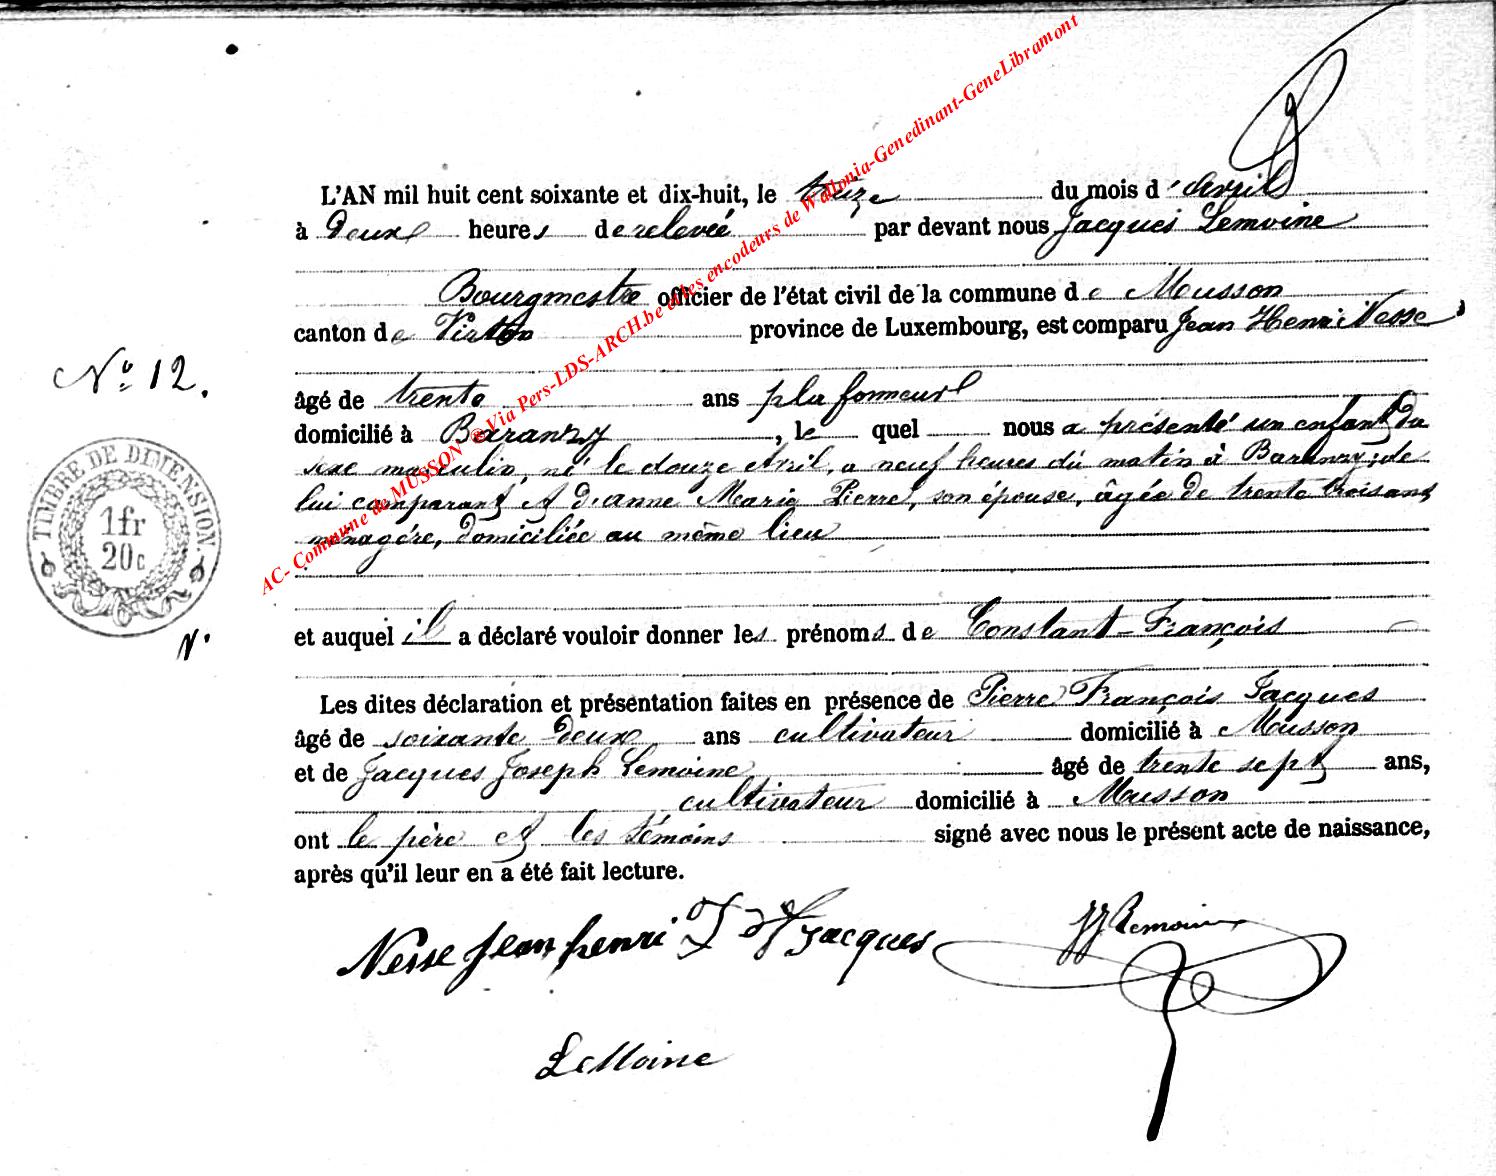 L'AN mil huit cent soixante et dix-huit, le treize du mois d'Avril
à Deux heures de relevée par devant nous Jacques Lemoine
Bourgmestre officier de l'état civil de la commune de Musson
canton de Virton province de Luxembourg, est comparu Jean Henri Nesse
N° 12.
âgé de trente ans plafonneur
domicilié à Baranzy, lequel nous a présenté un enfant du
sexe masculin, né le douze Avril, a neuf heures du matin à Baranzy, de
lui comparant et d'anne Marie Pierre, son épouse, âgée de trente trois ans
ménagère, domiciliée au même lieu
TIMBRE DE DIMENSION.
1fr
20c
N°
et auquel il a déclaré vouloir donner les prénoms de Constant-François
Les dites déclaration et présentation faites en présence de Pierre François Jacques
âgé de soixante deux ans cultivateur domicilié à Musson
et de Jacques Joseph Lemoine âgé de trente sept ans,
cultivateur domicilié à Musson
ont le père et les témoins signé avec nous le présent acte de naissance,
après qu'il leur en a été fait lecture.
Nesse jean henri Jacques JJ Lemoine
LeMoine
AC- Commune de MUSSON ®Via Pers-LDS-ARCH.be et les encodeurs de Wallonia-Genedinant-GeneLibramont